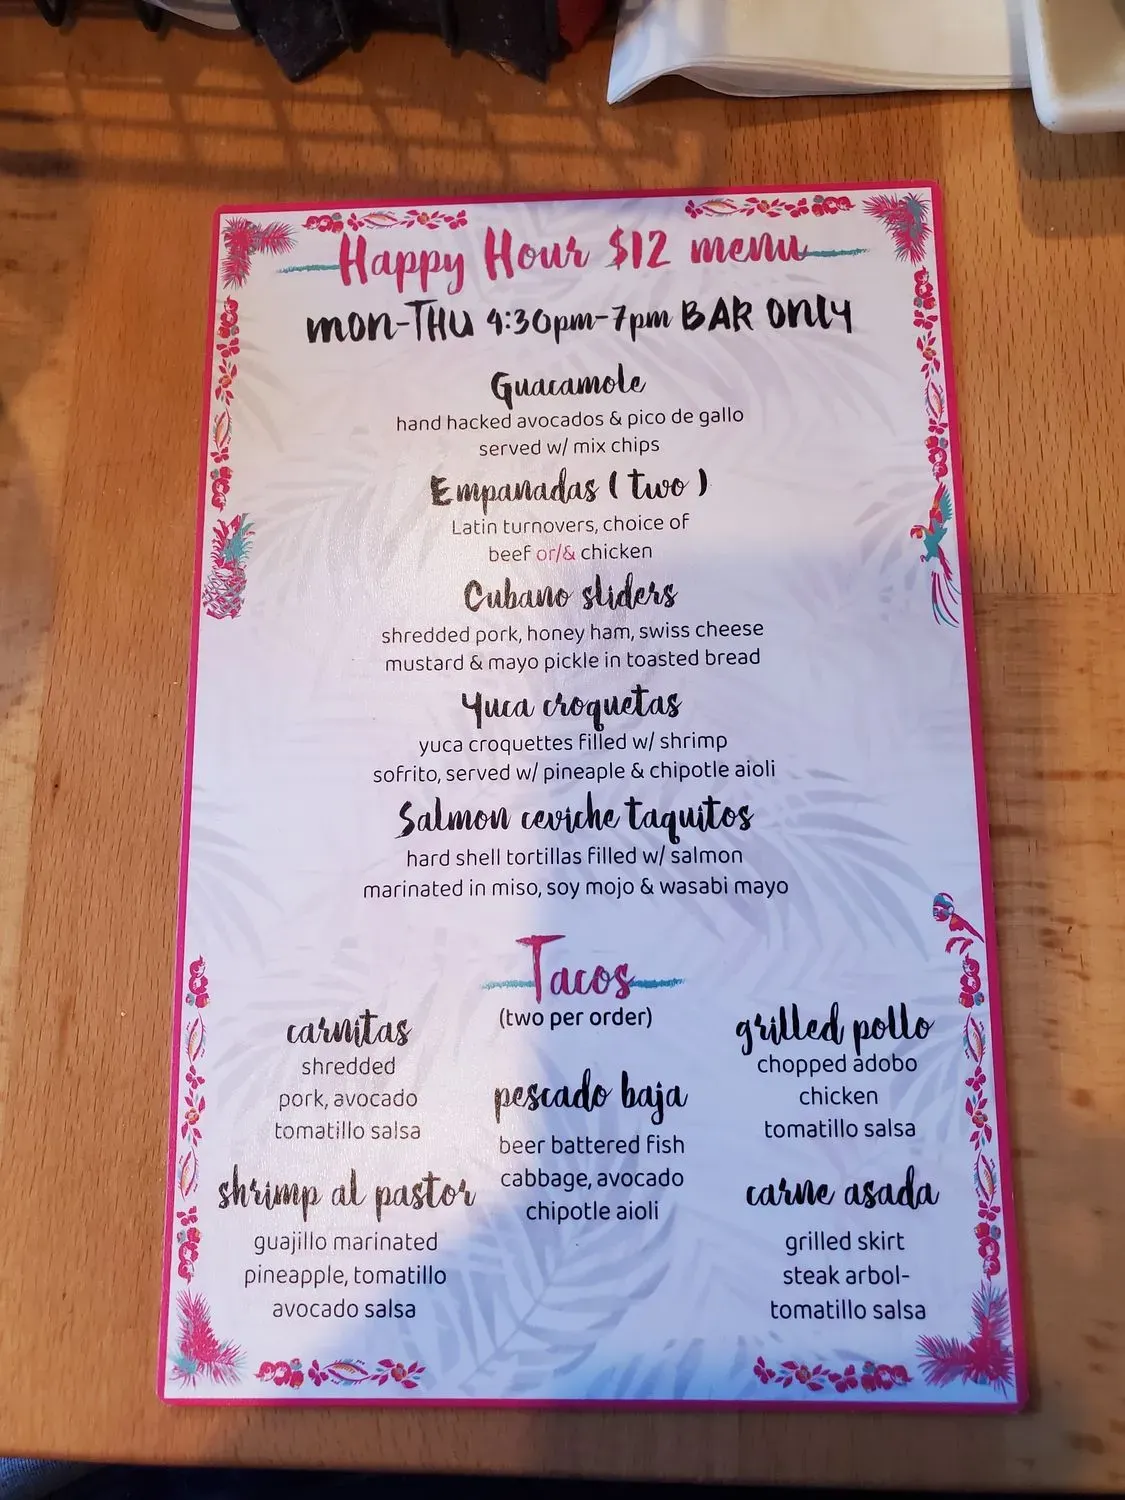 Happy Hour $12 menu
mon-THU 4:30pm-7pm BAR ONLY
Guacamole
hand hacked avocados & pico de gallo
served w/ mix chips
Empanadas ( two )
Latin turnovers, choice of
beef or/& chicken
Cubano sliders
shredded pork, honey ham, swiss cheese
mustard & mayo pickle in toasted bread
Yuca croquetas
yuca croquettes filled w/ shrimp
sofrito, served w/ pineaple & chipotle aioli
Salmon ceviche taquitos
hard shell tortillas filled w/ salmon
marinated in miso, soy mojo & wasabi mayo
Tacos
(two per order)
carnitas
shredded
pork, avocado
tomatillo salsa
shrimp al pastor
guajillo marinated
pineapple, tomatillo
avocado salsa
pescado baja
beer battered fish
cabbage, avocado
chipotle aioli
grilled pollo
chopped adobo
chicken
tomatillo salsa
carne asada
grilled skirt
steak arbol-
tomatillo salsa